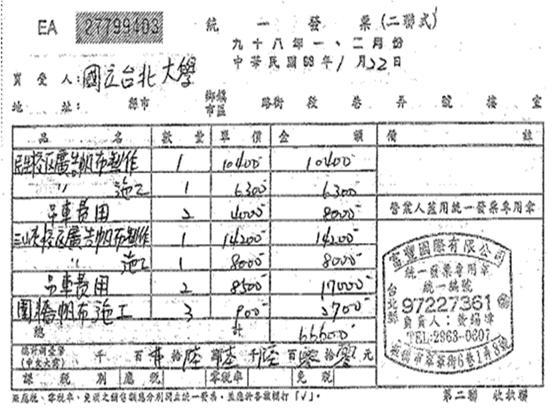 EA 27799403
統一發票(二聯式)
九十八年一、二月份
中華民國98年1月22日
買受人:國立台北大學
地址: 縣市 鄉鎮市區 路街 段 巷 弄 號 樓 室
品名 數量 單價 金額 備註
民生校區廣告帆布製作 1 10400 10400
〃 施工 1 6300 6300
吊車費用 2 4000 8000
三峽校區廣告帆布製作 1 14200 14200
〃 施工 1 8000 8000
吊車費用 2 8500 17000
圍牆帆布施工 3 900 2700
總計 66600
營業人蓋用統一發票專用章
富豐國際有限公司
統一發票專用章
統一編號
台北縣
97227361
負責人:
TEL:2963-0607
總計新臺幣(中文大寫) 千 百 拾陸 萬陸 千陸 百零 拾零 元
課稅別 應稅 零稅率 免稅
※應稅、零稅率、免稅之銷售額應分別開立統一發票,並應於各該欄打「√」。
第二聯 收執聯